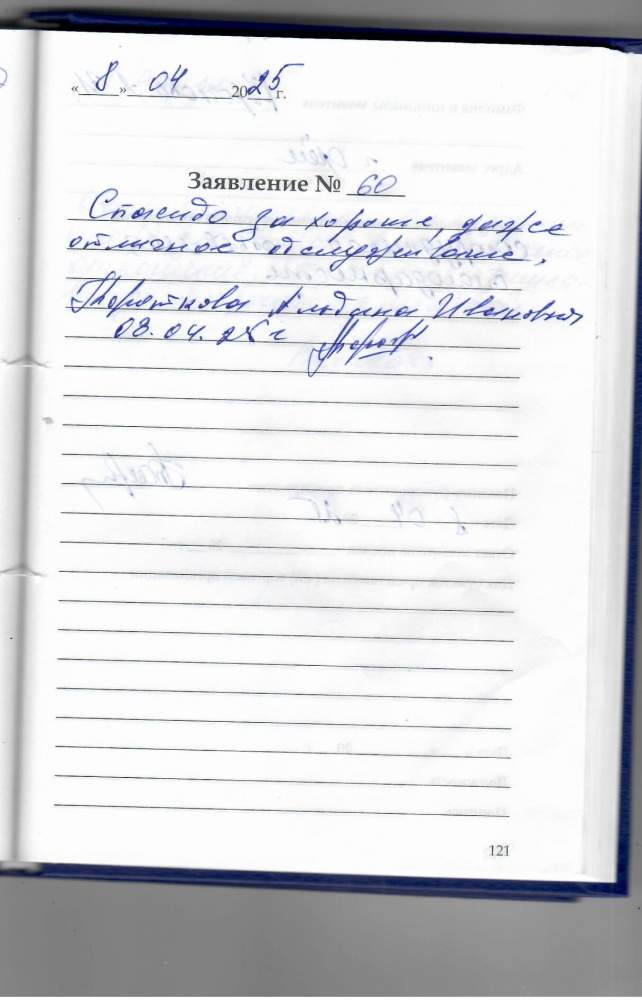 « 8 » 04 2025 г.
Заявление № 60
Спасибо за хорошее, даже
отличное обслуживание.
Короткова Ивановна
08.04.25 г
121